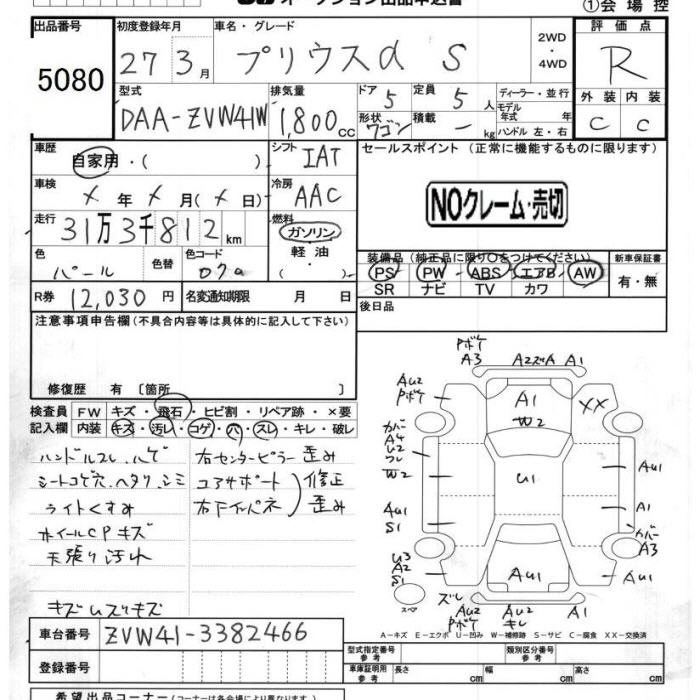 オークション出品申込書
①会場控
出品番号 5080
初度登録年月 27年 3月
車名・グレード プリウスα S
2WD・4WD
評価点 R
型式 DAA-ZVW41W
排気量 1,800cc
ドア 5 定員 5人
形状 ワゴン 積載 ー kg
ディーラー・並行
モデル年式 年
ハンドル 左・右
外装 C 内装 C
車歴 自家用・( )
シフト IAT
セールスポイント (正常に機能するものに限ります)
車検 × 年 × 月 (× 日)
冷房 AAC
NOクレーム・売切
走行 31万3千812km
燃料 ガソリン 軽油・( )
色 パール 色替 色コード 070
装備品 (純正品に限り○をつけてください) 新車保証書
PS PW ABS エアB AW
SR ナビ TV カワ 有・無
R券 12,030円 名変通知期限 月 日
後日品
注意事項申告欄 (不具合内容等は具体的に記入して下さい)
修復歴 有 〔箇所 〕
検査員記入欄
FW キズ・飛石・ヒビ割・リペア跡・×要
内装 キズ・汚レ・コゲ・穴・スレ・キレ・破レ
ハンドルスレ、ハゲ 右センターピラー歪み
シートコゲ穴、ヘタリ、シミ コアサポート 修正
ライトくすみ 右Fインパネ 歪み
ホイールCPキズ
天張り汚れ
キズムスリキズ
Pボケ
A3 A2ズA A1
AU2
Pボケ A1 XX
W2
カバー
A4
U2
W2 U1 AU1
AU1
S1 A1
カバー
A3
U3
A2
S1 AU1 AU1
スペア
ズレ
AU2 AU2 A1
Pボケ キレ
A-キズ E-エクボ U-凹み W-補修跡 S-サビ C-腐食 XX-交換済
車台番号 ZVW41-3382466
登録番号
型式指定番号 参考 類別区分番号 参考
車庫証明用 参考 長さ cm 幅 cm 高さ cm
希望出品コーナー (コーナーは各会場により異なります)